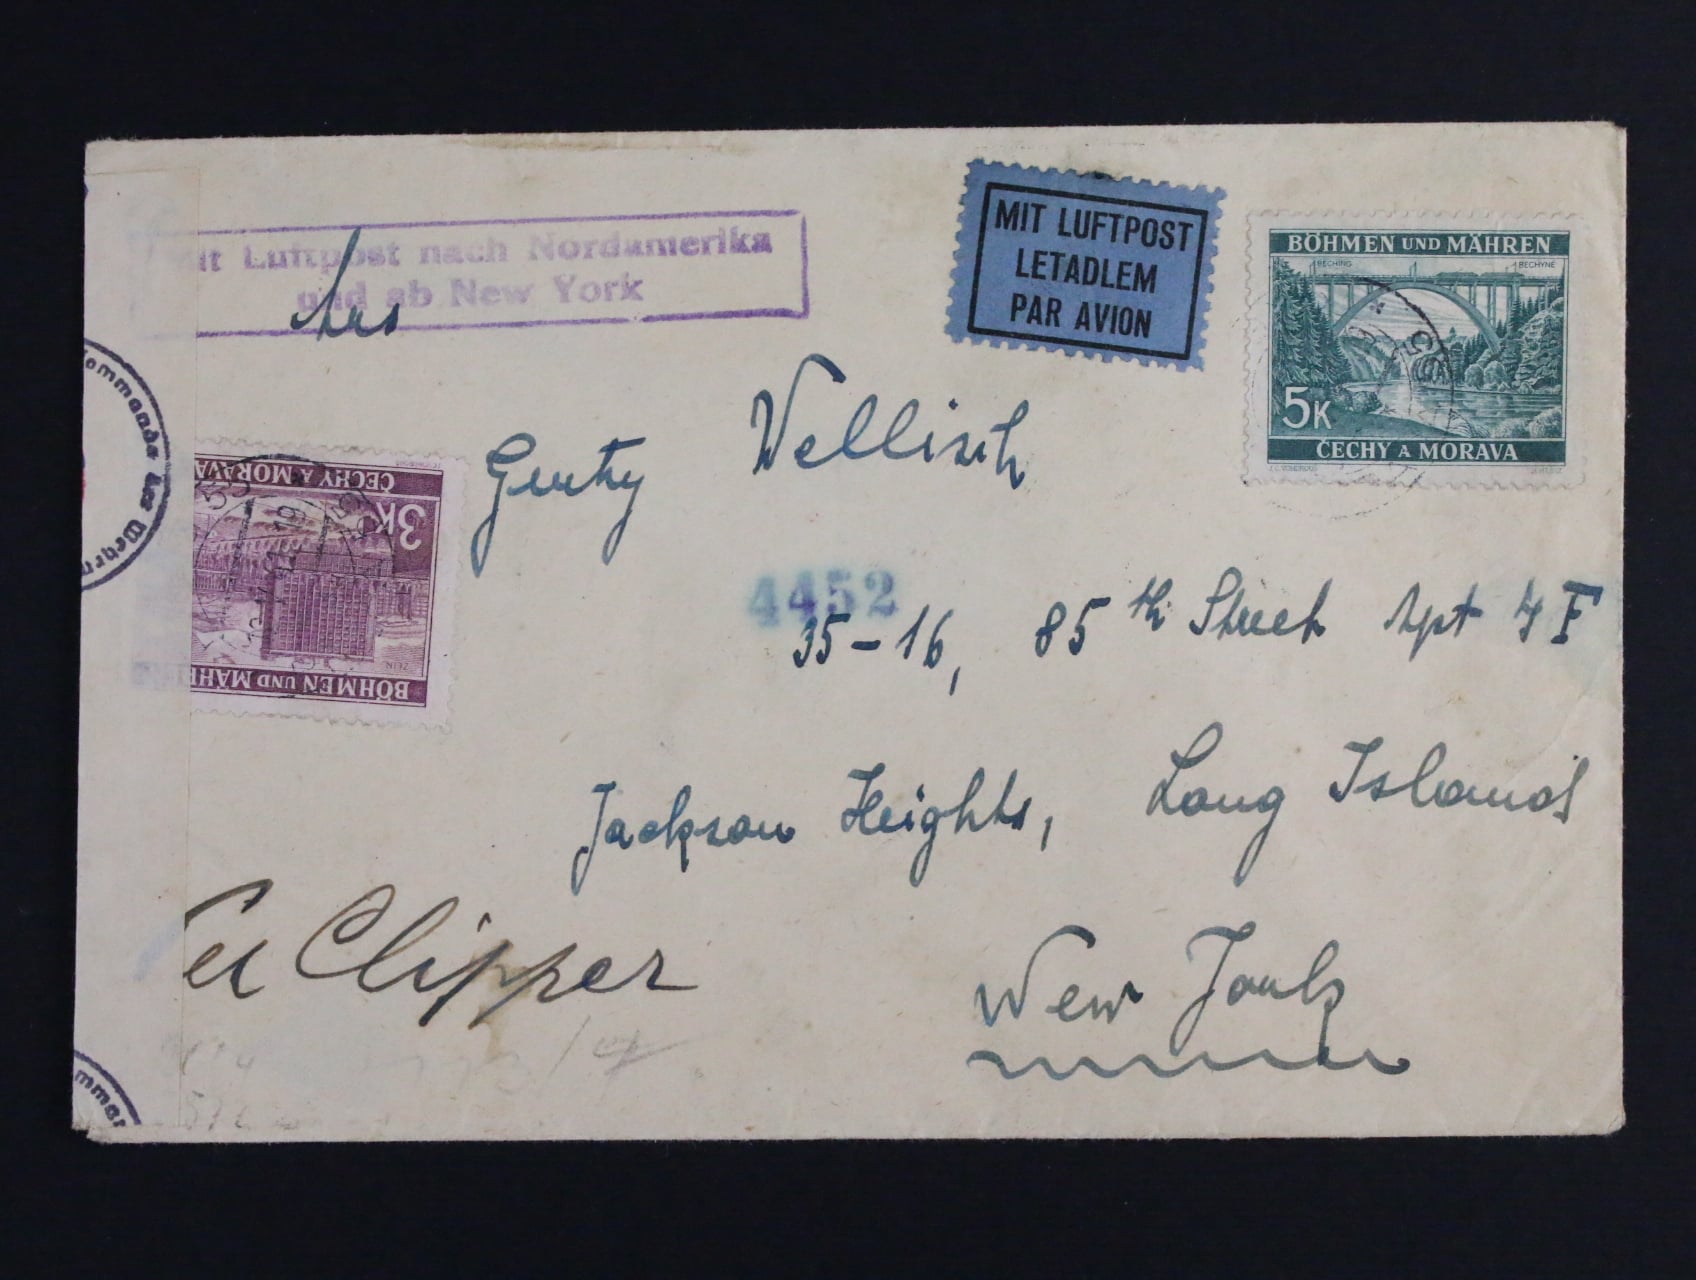 it Luftpost nach Nordamerika
und ab New York
MIT LUFTPOST
LETADLEM
PAR AVION
BÖHMEN UND MÄHREN
BECHING BECHYNE
5K
ČECHY A MORAVA
Mrs
Gerty Wellisch
4452
35-16, 85th Street Apt 7F
Jackson Heights, Long Island
New York
Clipper
ommando der Wehrm
ČECHY A MORAVA
3K
ZLIN
BÖHMEN UND MÄH
omma